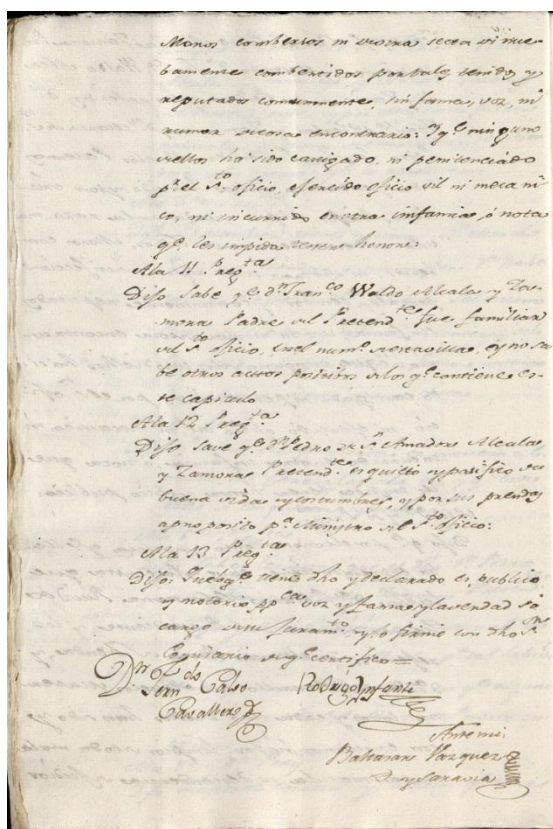 Moros combersos ni de otra secta ni nue-
bamente combertidos por tales tenidos y
reputados comunmente, sin fama, voz, ni
rumor de cosa en contrario: Y q.e ninguno
dellos ha sido castigado, ni penitenciado
p.r el S.to oficio, ejercido oficio vil ni mecani
co, ni incurrido en otra infamia, ó nota
q.e les impida tener honor:
A la 11 Preg.ta
Dijo Sabe q.e d.n Fran.co Waldo Alcala y Za-
mora Padre del Pretend.te fue familiar
del S.to oficio, en el num.o de esta villa, y no sa-
be otros actos positibos de los q.e contiene es-
te capitulo
A la 12 Preg.ta
Dijo Save q.e D.n Pedro de S.n Amador Alcala
y Zamora Pretend.te es quieto y pasifico de
buena vida y costumbres, y por sus prendas
aproposito p.a Ministro del S.to oficio:
A la 13 Preg.ta
Dijo: Que lo q.e tiene dho y declarado es publico
y notorio, pp.ca voz y fama y la verdad so
cargo de su juram.to y lo firmó con dho S.or
Comisario de q.e certifico =
Calvo
Cavallero
Rodrigo Infante
Ante mi:
Baltasar Vazquez
y Saravia